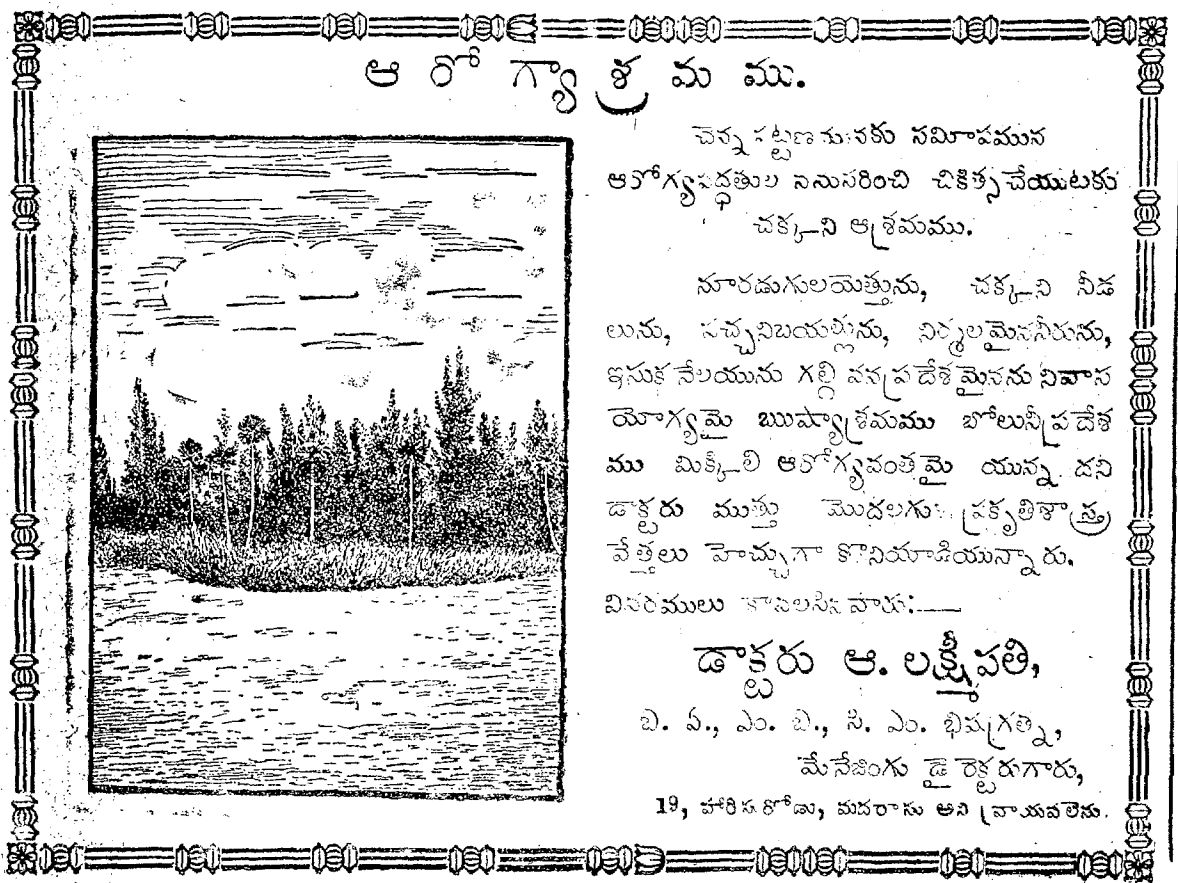 ఆ రో గ్యా శ్ర మ ము.
చెన్న పట్టణమునకు సమీపమున
ఆరోగ్యపద్ధతుల ననుసరించి చికిత్స చేయుటకు
చక్కని ఆశ్రమము.
నూరడుగులయెత్తును, చక్కని నీడ
లును, పచ్చనిబయళ్లును, నిర్మలమైననీరును,
ఇసుక నేలయును గల్గి వనప్రదేశమైనను నివాస
యోగ్యమై ఋష్యాశ్రమము బోలునీప్రదేశ
ము మిక్కిలి ఆరోగ్యవంతమై యున్న దని
డాక్టరు ముత్తు మొదలగు ప్రకృతిశాస్త్ర
వేత్తలు హెచ్చుగా కొనియాడియున్నారు.
వివరములు కావలసిన వారు:—
డాక్టరు ఆ. లక్ష్మీపతి,
బి. ఏ., ఎం. బి., సి. ఎం. భిషగ్రత్న,
మేనేజింగు డైరెక్టరుగారు,
19, హారిసురోడు, మదరాసు అని వ్రాయవలెను.